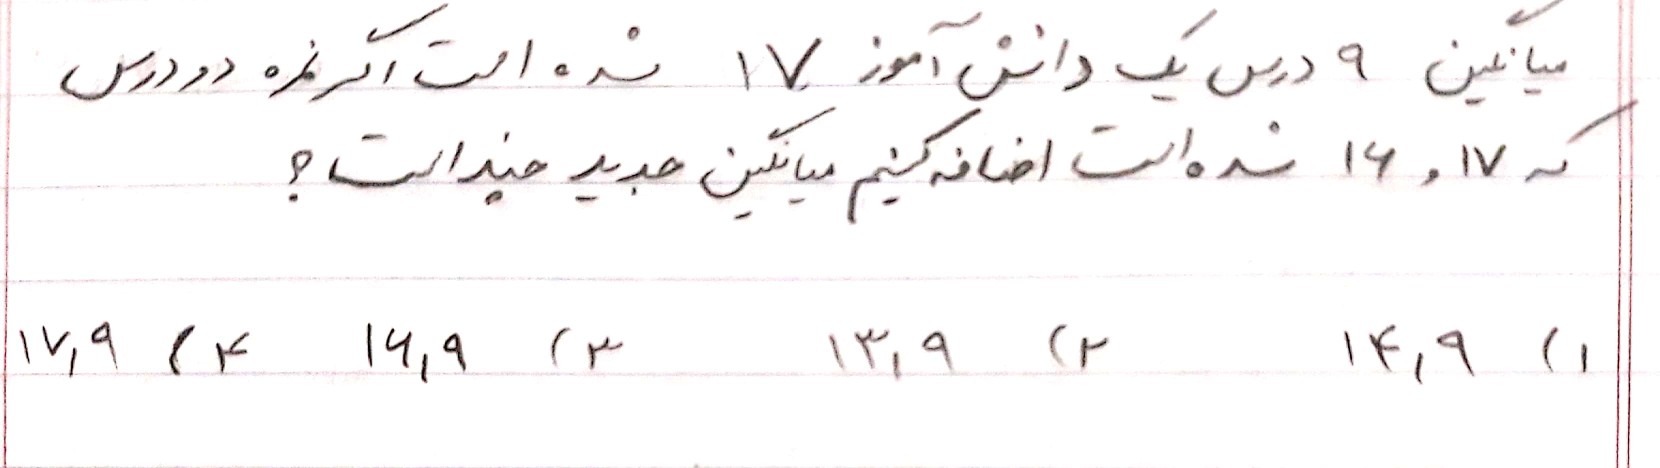 میانگین ۹ درس یک دانش آموز ۱۷ شده است اگر نمره دو درس
که ۱۷ و ۱۶ شده است اضافه کنیم میانگین جدید چند است؟
۱) ۱۴,۹ ۲) ۱۳,۹ ۳) ۱۶,۹ ۴) ۱۷,۹